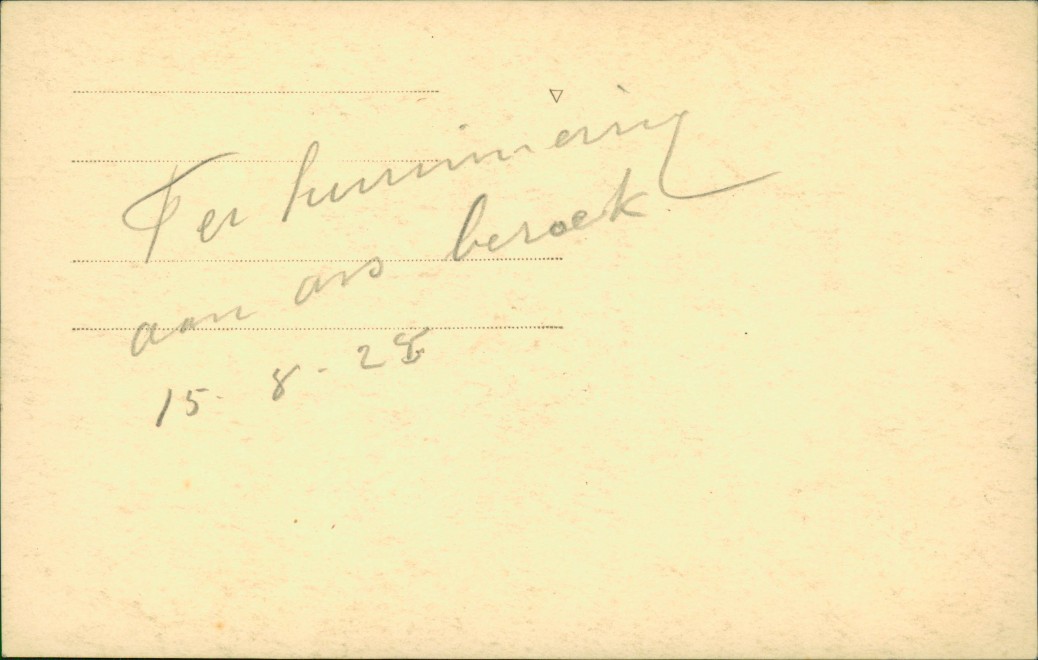 Ter herinnering
aan ons bezoek
15-8-28